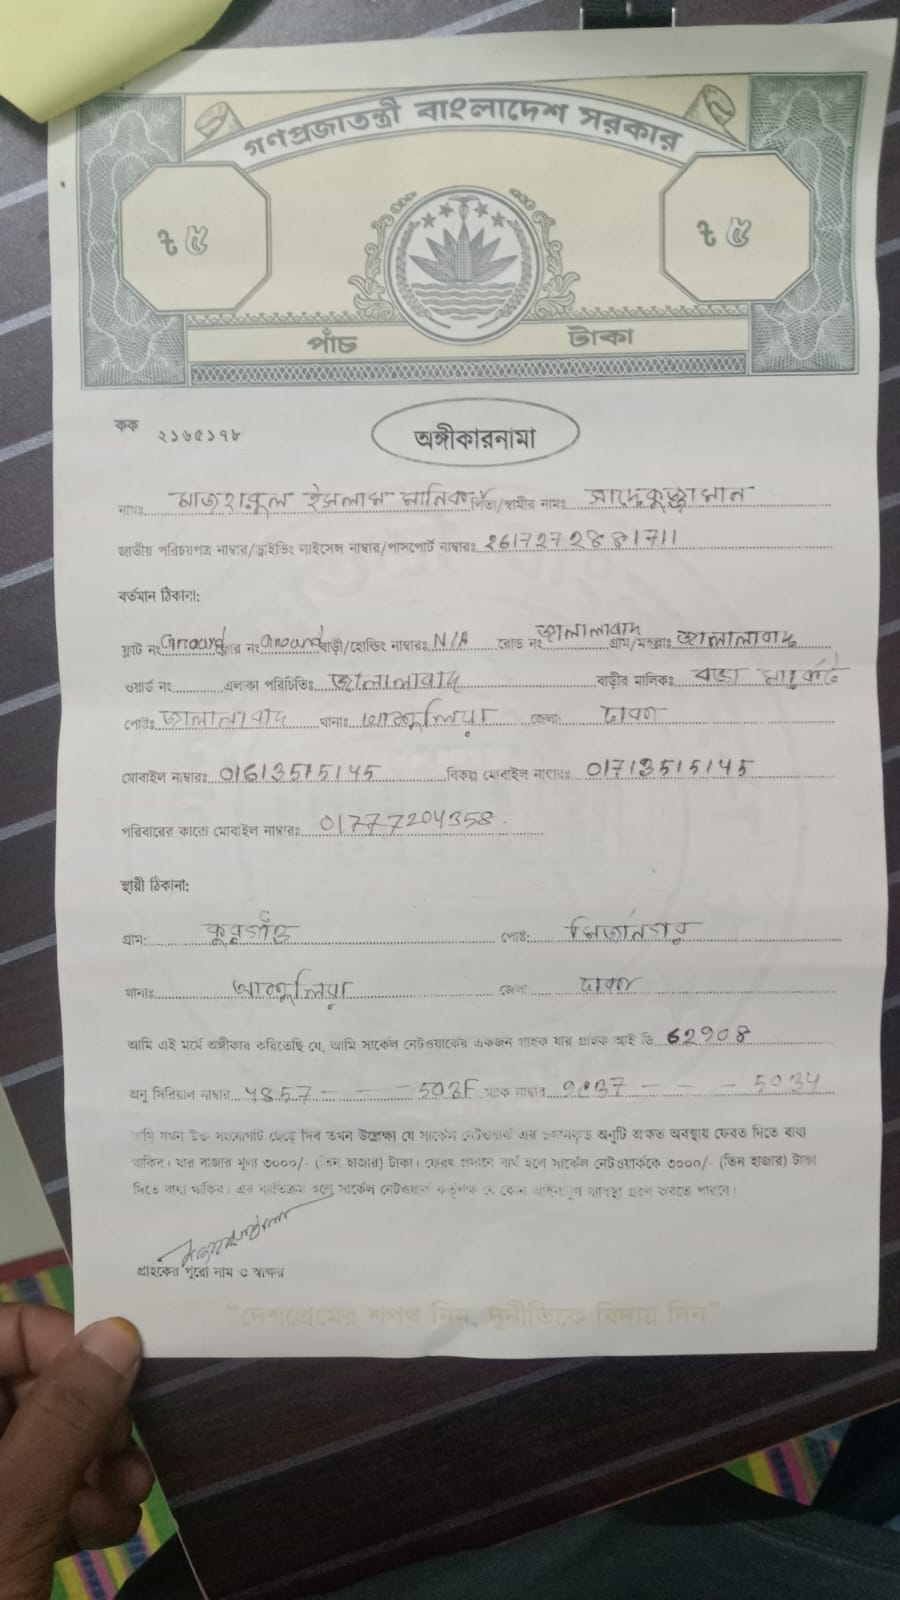 গণপ্রজাতন্ত্রী বাংলাদেশ সরকার
৳ ৫ ৳ ৫
পাঁচ টাকা
কক ২১৬৫১৭৮
অঙ্গীকারনামা
নামঃ মাজহারুল ইসলাম মানিক পিতা/স্বামীর নামঃ
জাতীয় পরিচয়পত্র নাম্বার/ড্রাইভিং লাইসেন্স নাম্বার/পাসপোর্ট নাম্বারঃ 2617272881711
বর্তমান ঠিকানা:
ফ্লাট নং Ground ফ্লোর নং Ground বাড়ী/হোল্ডিং নাম্বারঃ N/A রোড নং জালালাবাদ গ্রাম/মহল্লাঃ জালালাবাদ
ওয়ার্ড নং এলাকা পরিচিতিঃ জালালাবাদ বাড়ীর মালিকঃ
পোষ্টঃ জালালাবাদ থানাঃ আশুলিয়া জেলা: ঢাকা
মোবাইল নাম্বারঃ 01613515145 বিকল্প মোবাইল নাম্বারঃ 01713515145
পরিবারের কারো মোবাইল নাম্বারঃ 01777204358.
স্থায়ী ঠিকানা:
গ্রাম: পোষ্ট: মির্জানগর
থানাঃ আশুলিয়া জেলা ঢাকা
আমি এই মর্মে অঙ্গীকার করিতেছি যে, আমি সার্কেল নেটওয়ার্কের একজন গ্রাহক যার গ্রাহক আই ডি 62908
অনু সিরিয়াল নাম্বার 4857 - - 503F ম্যাক নাম্বার - - - 5034
আমি যখন উক্ত সংযোগটি ছেড়ে দিব তখন উল্লেখ্য যে সার্কেল নেটওয়ার্ক এর প্রদানকৃত অনুটি অক্ষত অবস্থায় ফেরত দিতে বাধ্য
থাকিব। যার বাজার মূল্য ৩০০০/- (তিন হাজার) টাকা। ফেরৎ প্রদানে ব্যর্থ হলে সার্কেল নেটওয়ার্ককে ৩০০০/- (তিন হাজার) টাকা
দিতে বাধ্য থাকিব। এর ব্যতিক্রম হলে সার্কেল নেটওয়ার্ক কর্তৃপক্ষ যে কোন আইনানুগ ব্যবস্থা গ্রহণ করতে পারবে।
গ্রাহকের পুরো নাম ও স্বাক্ষর
"দেশপ্রেমের শপথ নিন, দুর্নীতিকে বিদায় দিন"